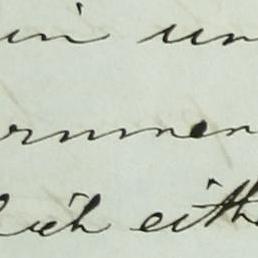 in un
ernmen
hich eithe